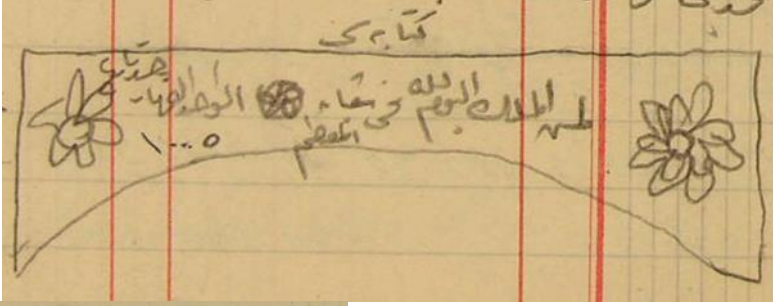 كتابه سى
لمن الملك اليوم لله فى شعبان المعظم الواحد القهار
١٠٠٥